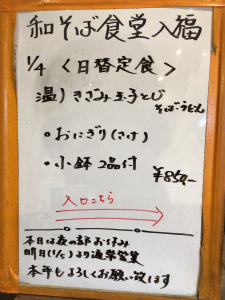 和そば食堂入福
1/4 〈日替定食〉
温) きざみ玉子とじ
そば・うどん
・おにぎり(さけ)
・小鉢2品付
¥850-
入口こちら
本日は夜の部お休み
明日(1/5)より通常営業
本年もよろしくお願い致します